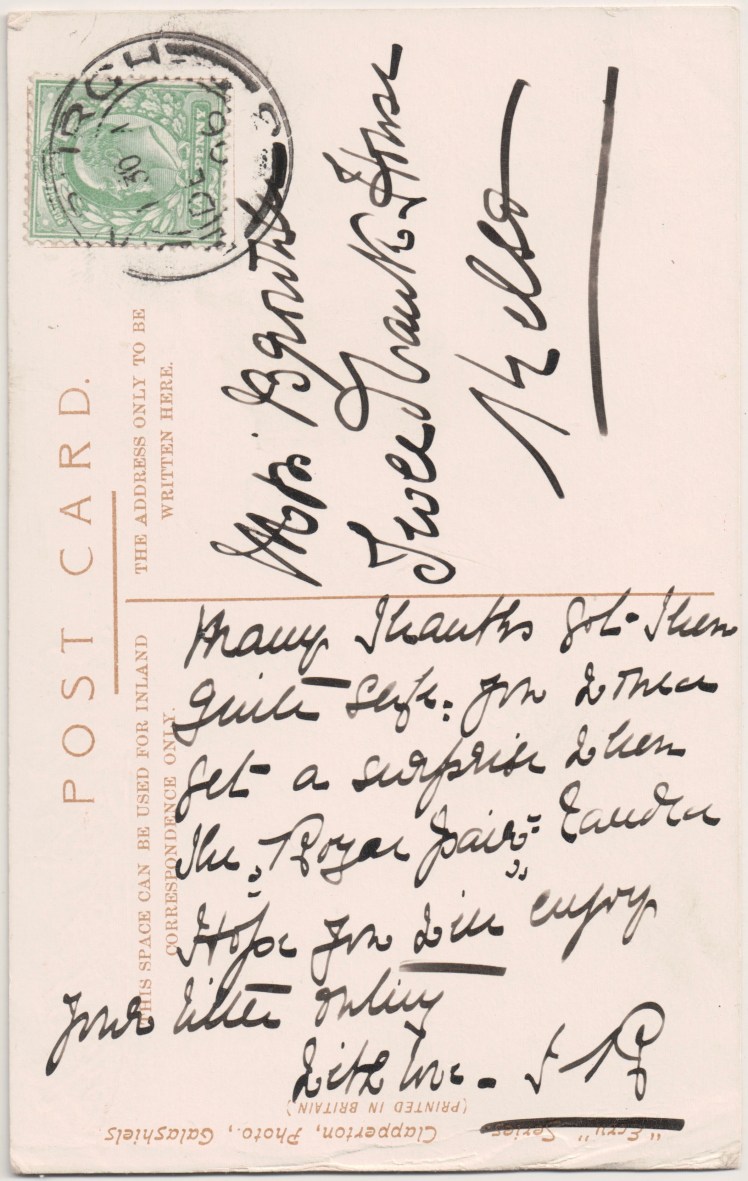 POST CARD.
THIS SPACE CAN BE USED FOR INLAND
CORRESPONDENCE ONLY.
THE ADDRESS ONLY TO BE
WRITTEN HERE.
PENNY
1 30
Miss
Tweedbank House
Kelso
Many thanks got them
quite safe. you
get a surprise when
the "Royal pair"
Hope you will enjoy
your little outing
With love -
"Ecry" Series
Clapperton, Photo., Galashiels.
(PRINTED IN BRITAIN)